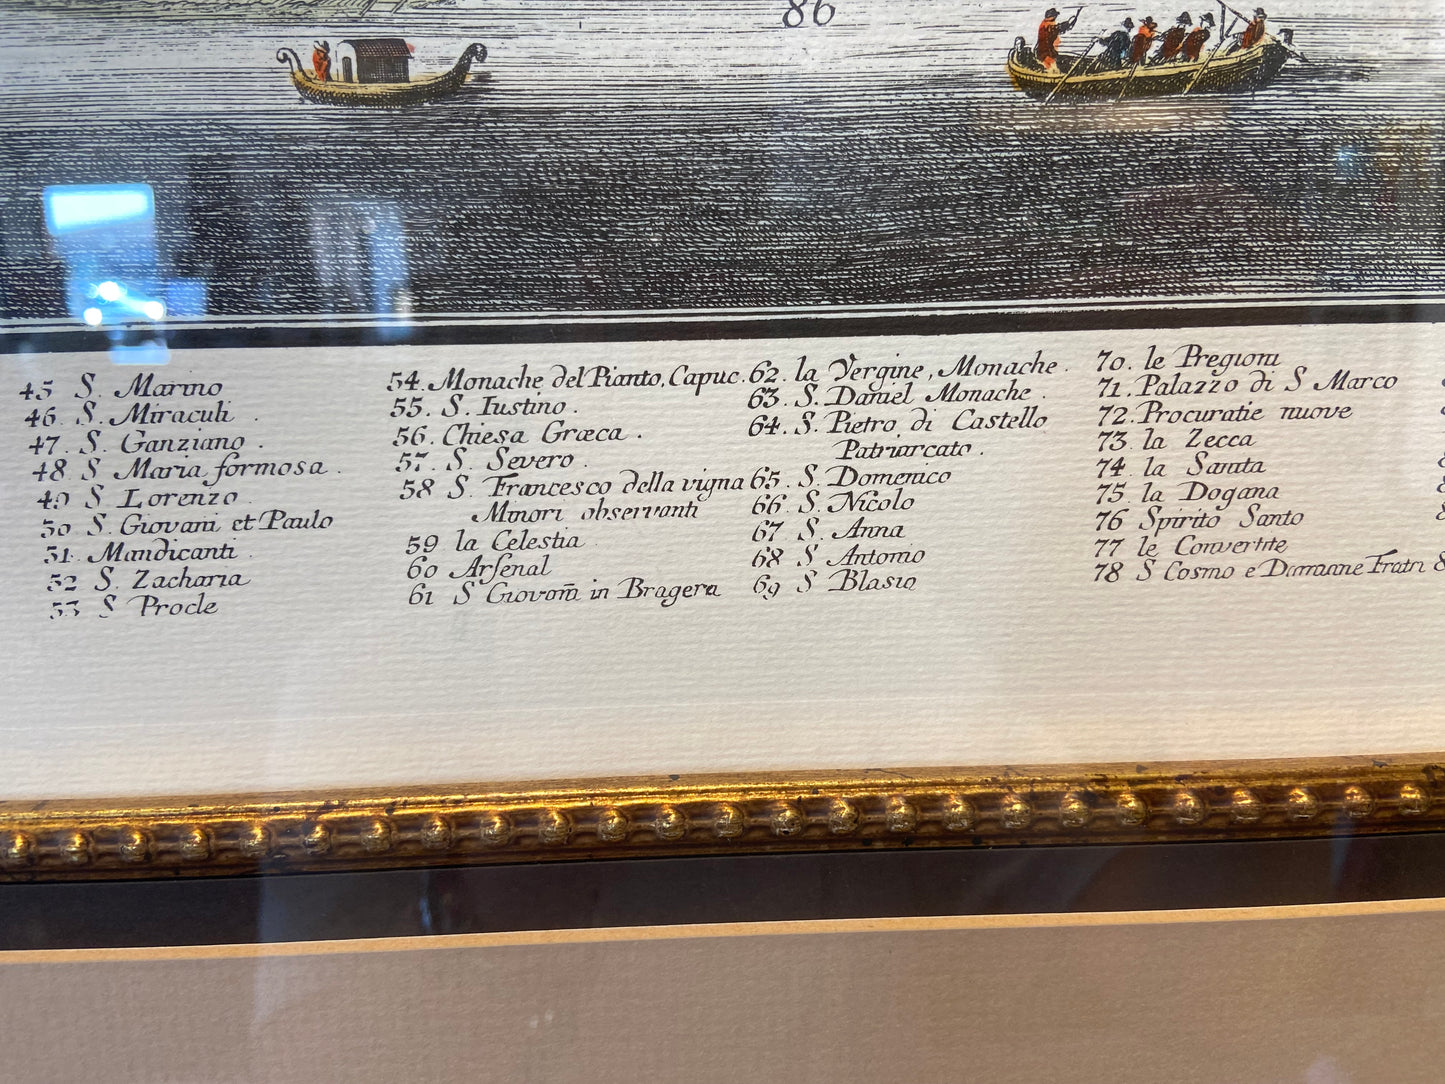 86
45 S. Marino
46. S. Miraculi.
47. S. Ganziano.
48 S Maria formosa.
49 S Lorenzo
50 S. Giovani et Paulo
51. Mandicanti.
52 S. Zacharia
53 S Procle
54. Monache del Pianto, Capuc.
55. S. Iustino.
56. Chiesa Græca.
57. S. Severo.
58 S. Francesco della vigna
Minori observanti
59 la Celestia
60 Arſenal
61 S Giovan̄i in Bragera
62. la Vergine, Monache.
63. S. Daniel Monache.
64. S. Pietro di Castello
Patriarcato.
65. S. Domenico
66 S. Nicolo
67 S. Anna
68 S Antonio
69 S Blasio
70. le Pregioni
71. Palazzo di S Marco
72. Procuratie nuove
73 la Zecca
74 la Sanita
75 la Dogana
76 Spirito Santo
77 le Convertite
78 S Cosmo e Damianne Fratri